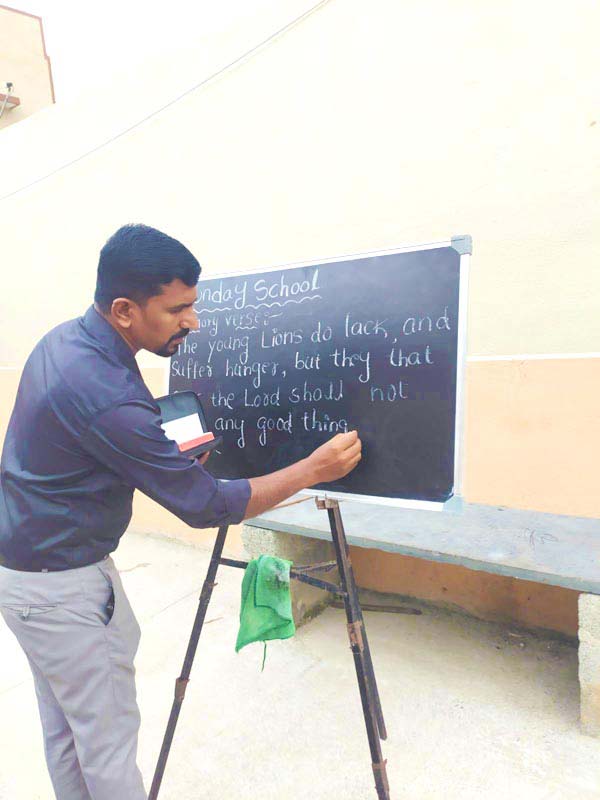 unday School
mory verse:-
The young Lions do lack, and
Suffer hunger, but they that
the Lord shall not
any good thing